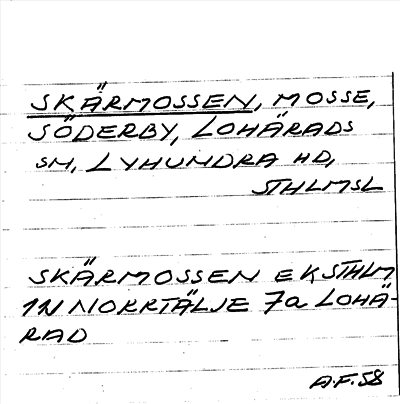 SKÄRMOSSEN, MOSSE,
SÖDERBY, LOHÄRADS
SN, LYHUNDRA HD,
STHLMSL
SKÄRMOSSEN EKSTHLM
1N NORRTÄLJE 7a LOHÄ-
RAD
A.F.58